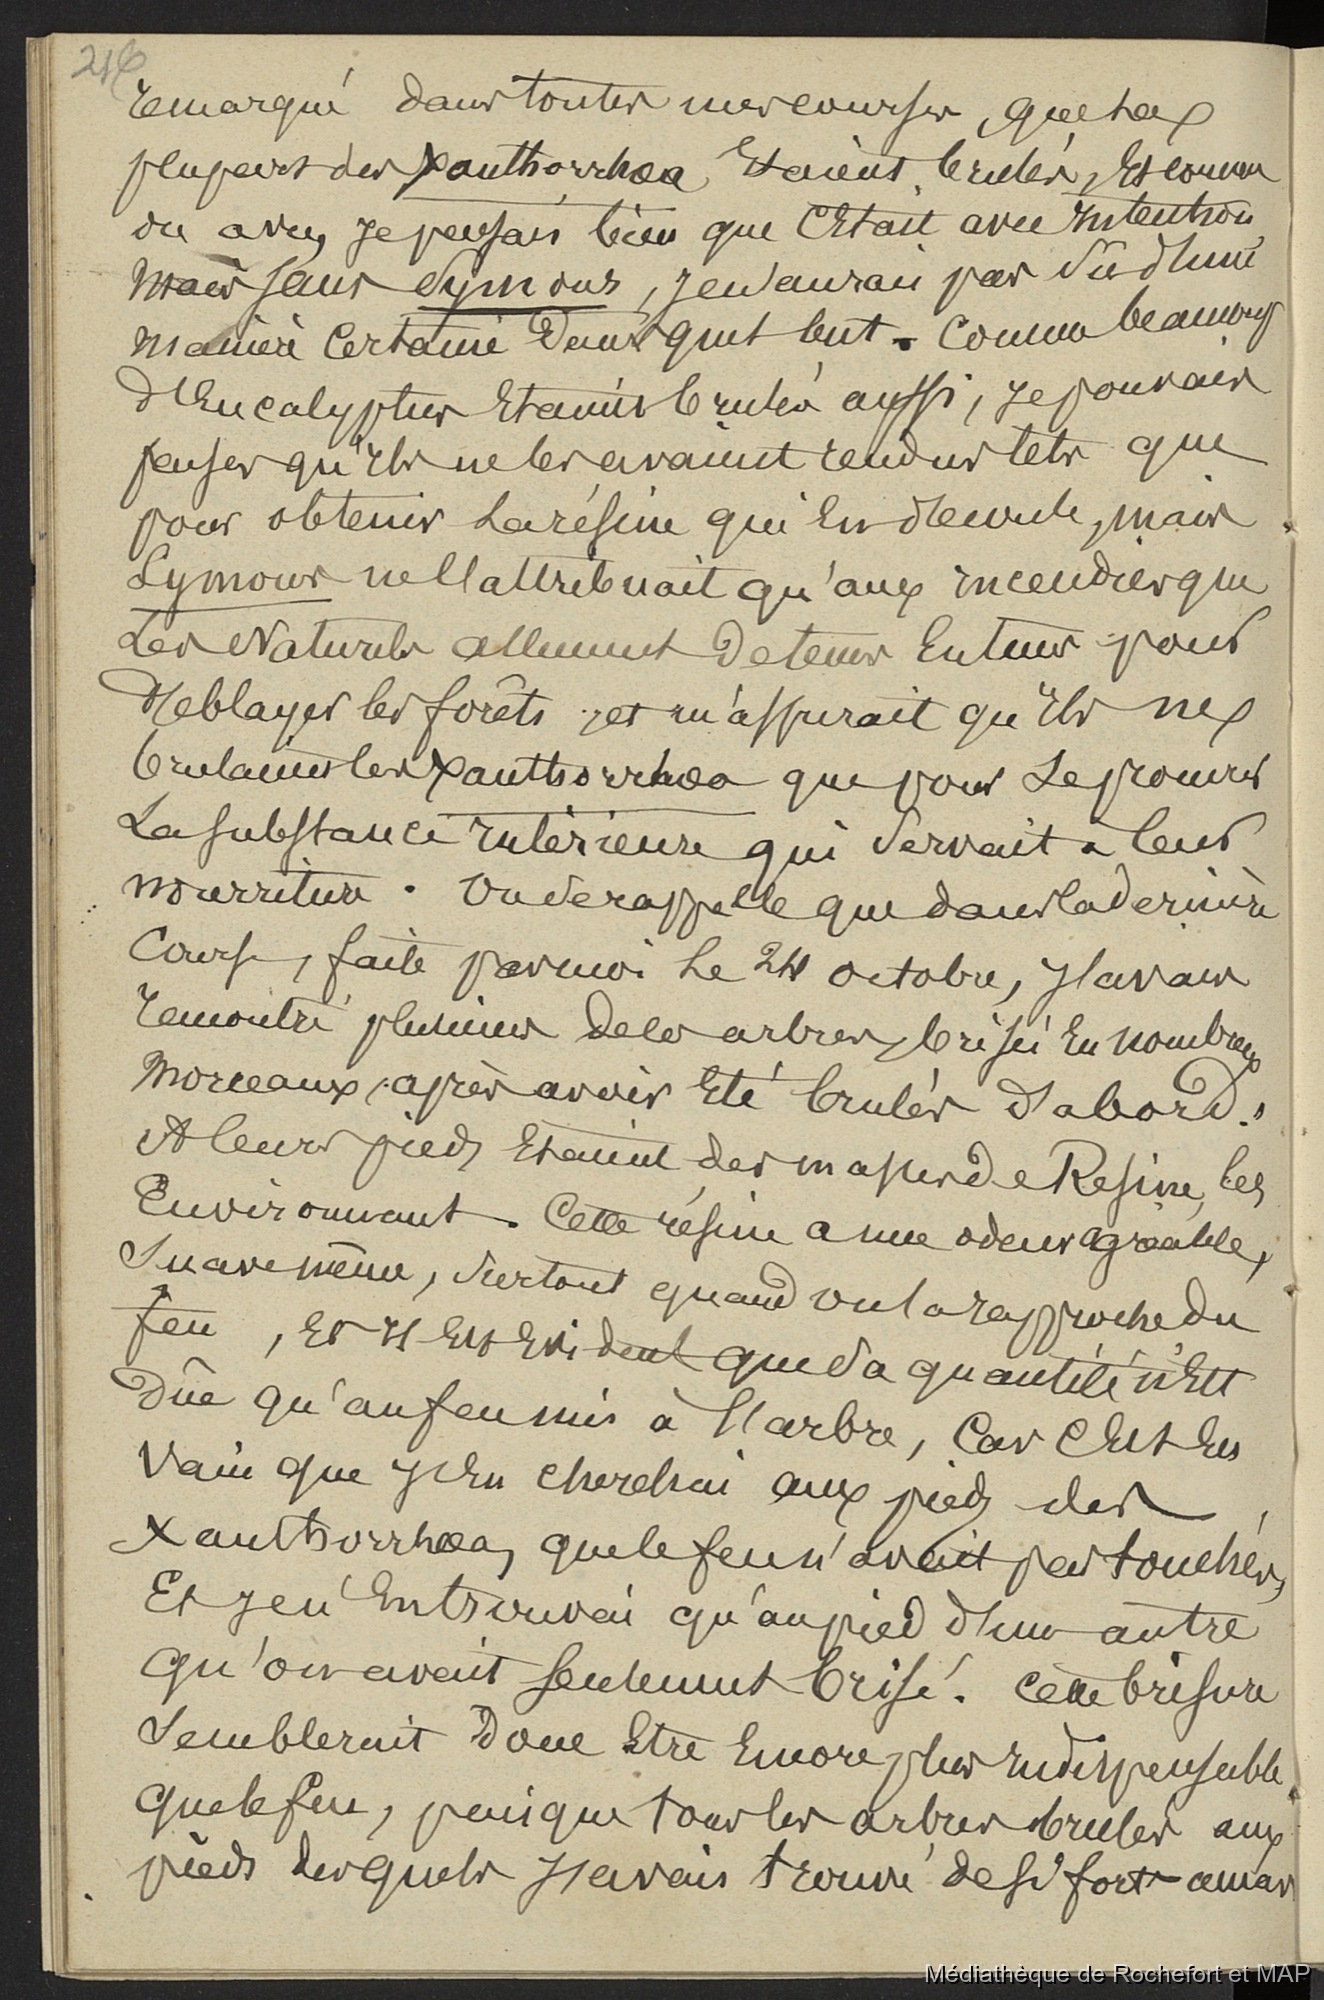 216
remarqué dans toutes mes courses, que la
plupart des Xanthorrhoea etaient brulés, et comme
on a vu, je pensais bien que c'etait avec intention
mais sans Symour, je n'aurais pas su d'une
manière certaine dans quel but. Comme beaucoup
d'Eucalyptus etaient brulés aussi, je pouvais
penser qu'ils ne les avaient rendus tels que
pour obtenir la résine qui en decoule, mais
Symour ne l'attribuait qu'aux incendies que
les Naturels allument de tems en tems pour
deblayer les forêts, et m'assurait qu'ils ne
brulaient les Xanthorrhoea que pour se procurer
la substance intérieure qui servait a leur
nourriture. On se rappelle que dans la dernière
course, faite par moi le 24 octobre, j'avais
rencontré plusieurs de ces arbres, brisés en nombreux
morceaux, après avoir eté brulés d'abord.
A leurs pieds etaient des masses de Resine, les
environnant. Cette résine a une odeur agréable,
suave même, surtout quand on la rapproche du
feu, et il est evident que sa quantité n'est
dûe qu'au feu mis à l'arbre, car c'est en
vain que j'en cherchai aux pieds des
Xanthorrhoea, que le feu n'avait pas touchés,
et je n'en trouvai qu'au pied d'un autre
qu'on avait seulement brisé. Cette brisure
semblerait donc etre encore plus indispensable
que le feu, puisque tous les arbres brulés aux
pieds desquels j'avais trouvé de si fort amas
Médiathèque de Rochefort et MAP